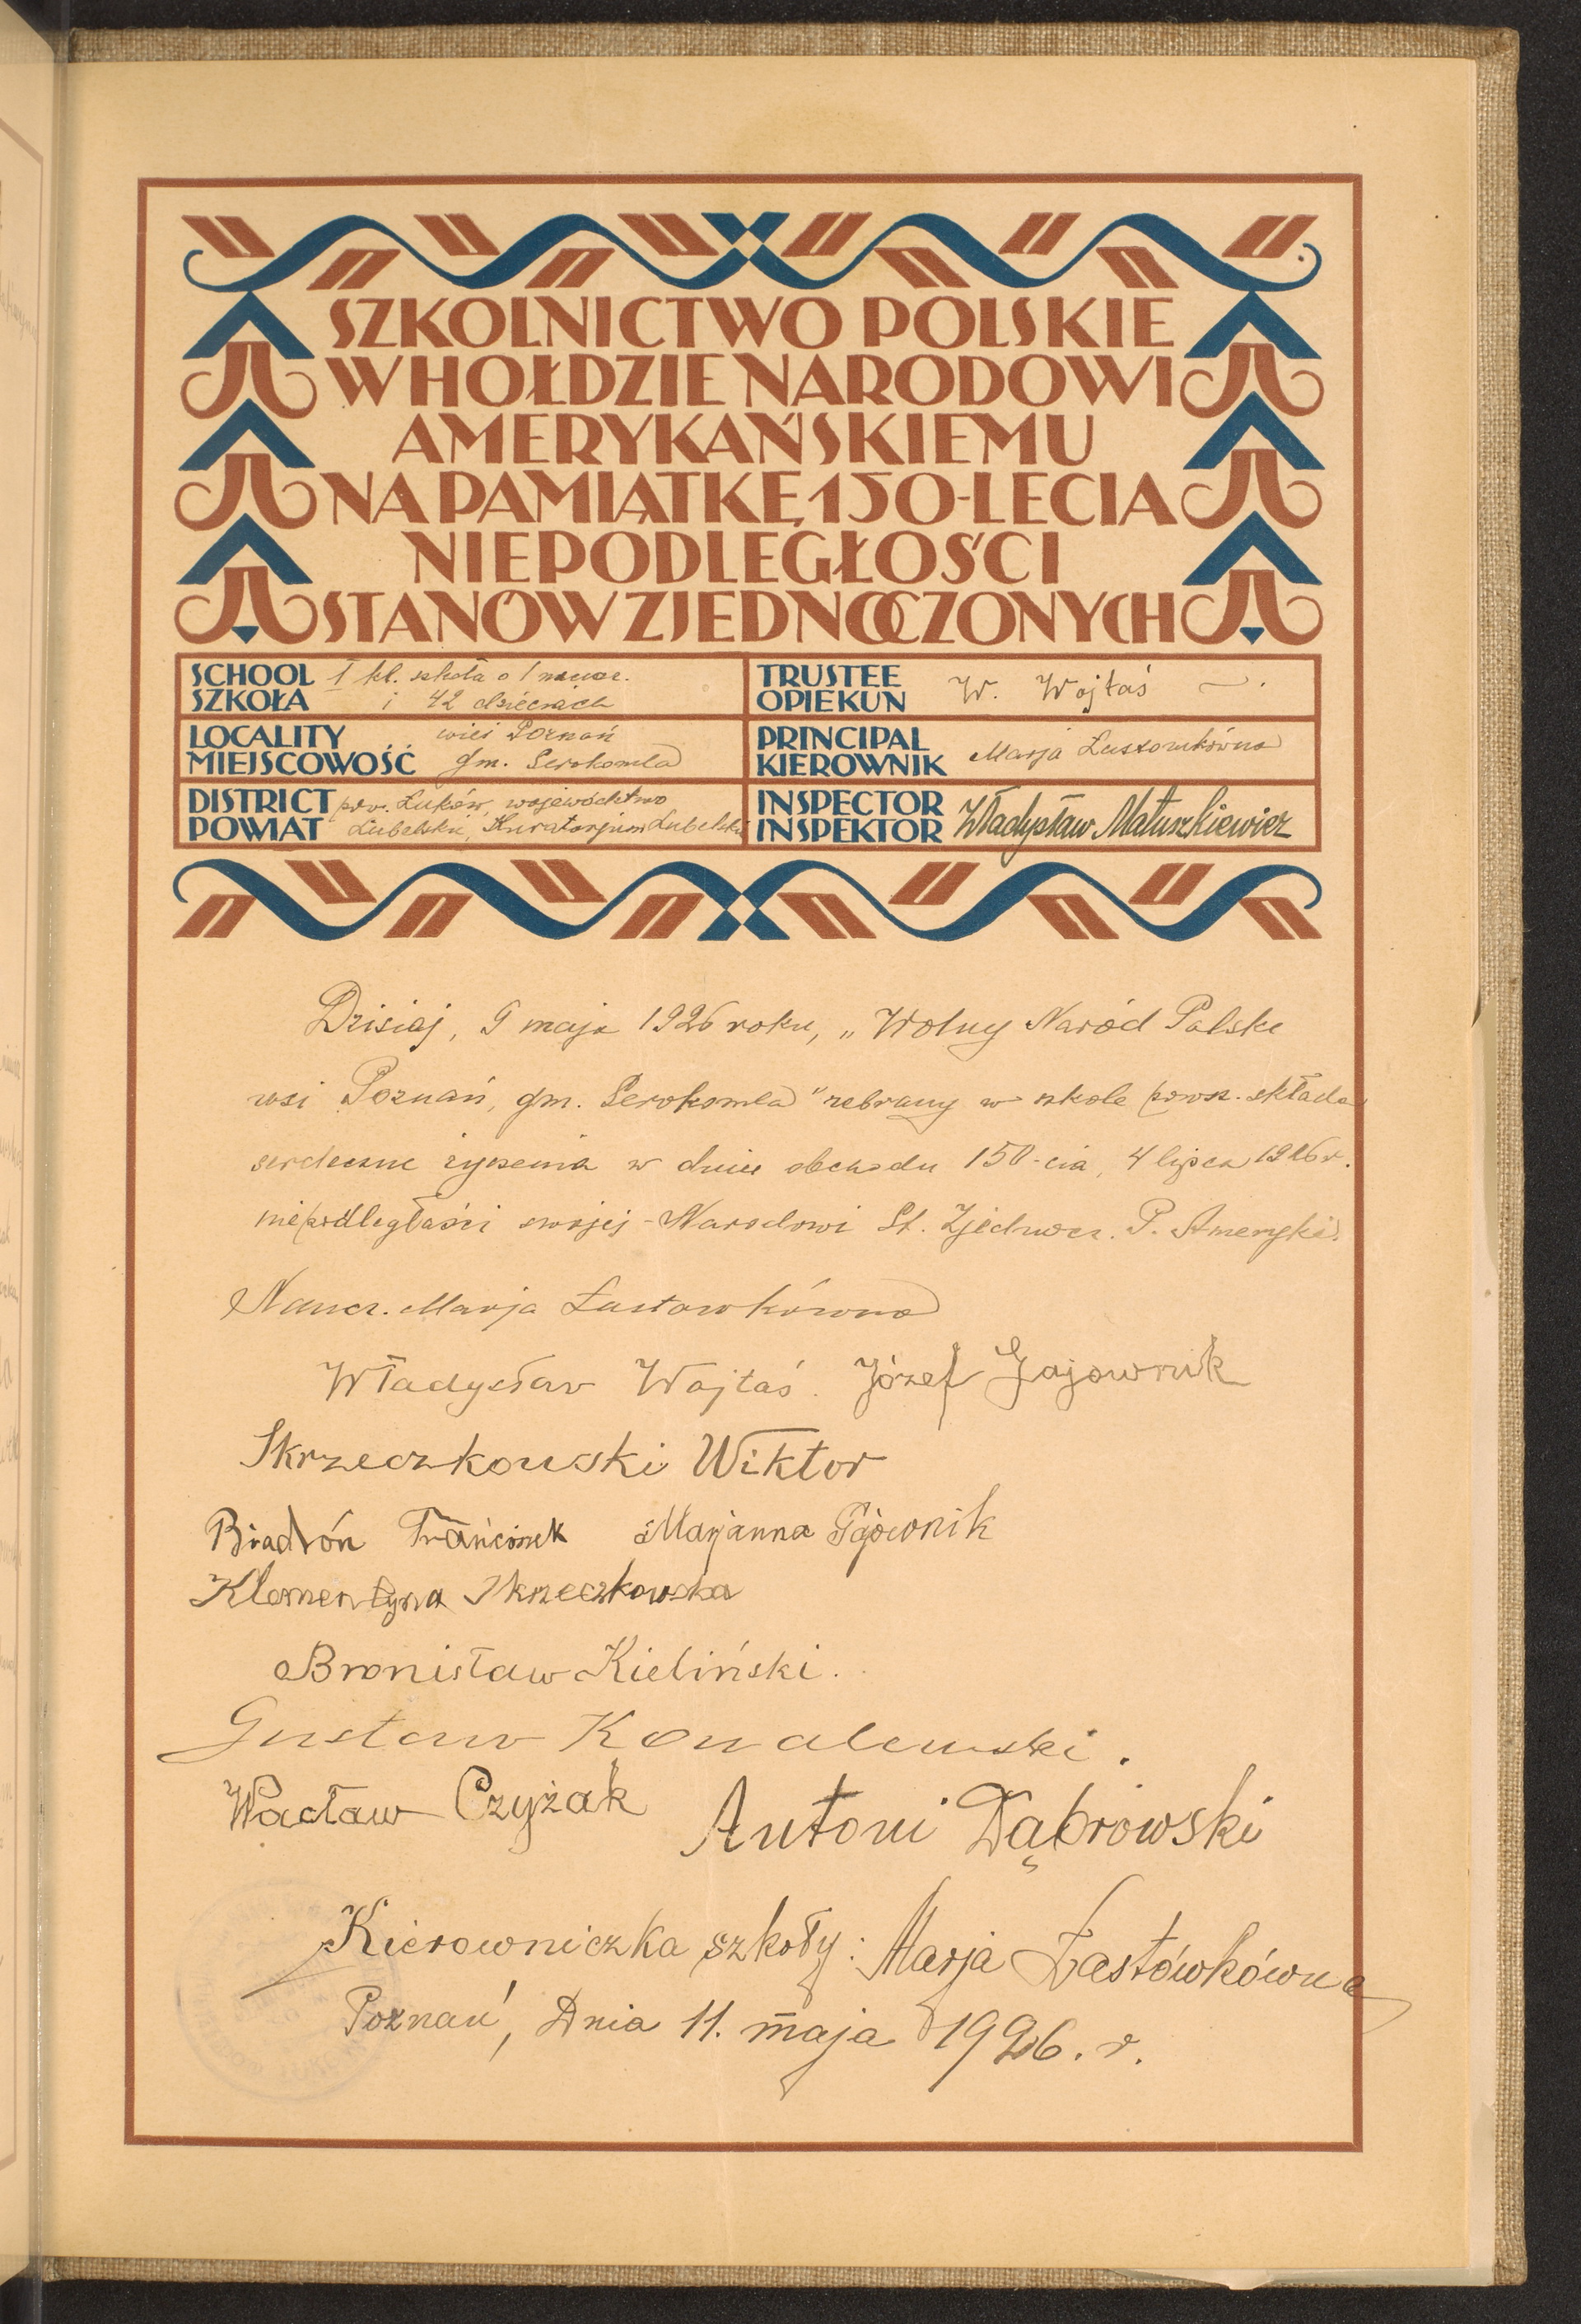 SZKOLNICTWO POLSKIE
W HOŁDZIE NARODOWI
AMERYKAŃSKIEMU
NA PAMIĄTKĘ 150-LECIA
NIEPODLEGŁOŚCI
STANÓW ZJEDNOCZONYCH
SCHOOL I kl. szkoła o 1 naucz.
SZKOŁA i 42 dzieciach
TRUSTEE
OPIEKUN W. Wojtaś
LOCALITY wieś Poznań
MIEJSCOWOŚĆ gm. Serokomla
PRINCIPAL
KIEROWNIK Marja Łastowkówna
DISTRICT pow. Łuków, województwo
POWIAT Lubelskie, Kuratorjum Lubelskie
INSPECTOR
INSPEKTOR Władysław Matuszkiewicz
Dzisiaj, 9 maja 1926 roku, „Wolny Naród Polski
wsi Poznań, gm. Serokomla" zebrany w szkole powsz. składa
serdeczne życzenia w dniu obchodu 150-cia, 4 lipca 1926 r.
niepodległości swojej - Narodowi St. Zjednocz. P. Ameryki.
Naucz. Marja Łastowkówna
Władysław Wojtaś. Józef Gajownik
Skrzeczkowski Wiktor
Biadroń Frańciszek Marjanna Gajownik
Klementyna Skrzeczkowska
Bronisław Kieliński.
Gustaw Kowalewski.
Wacław Czyżak Antoni Dąbrowski
Kierowniczka szkoły: Marja Łastówkówna
Poznań, Dnia 11. maja 1926. r.